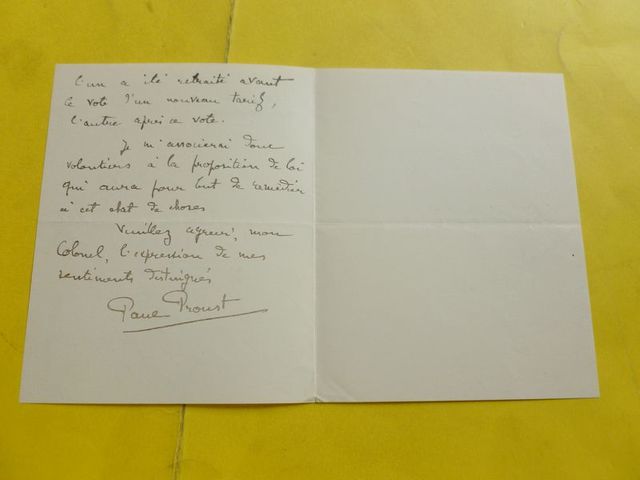 l'un a été retraité avant
le vote d'un nouveau tarif,
l'autre après ce vote.
Je m'associerai donc
volontiers à la proposition de loi
qui aura pour but de remédier
à cet état de choses
Veuillez agréer, mon
Colonel, l'expression de mes
sentiments distingués
Paul Proust